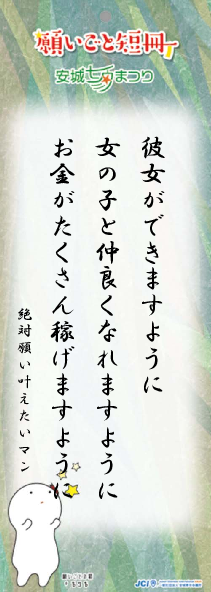 願いごと短冊
安城七夕まつり
彼女ができますように
女の子と仲良くなれますように
お金がたくさん稼げますように
絶対願い叶えたいマン
JCI